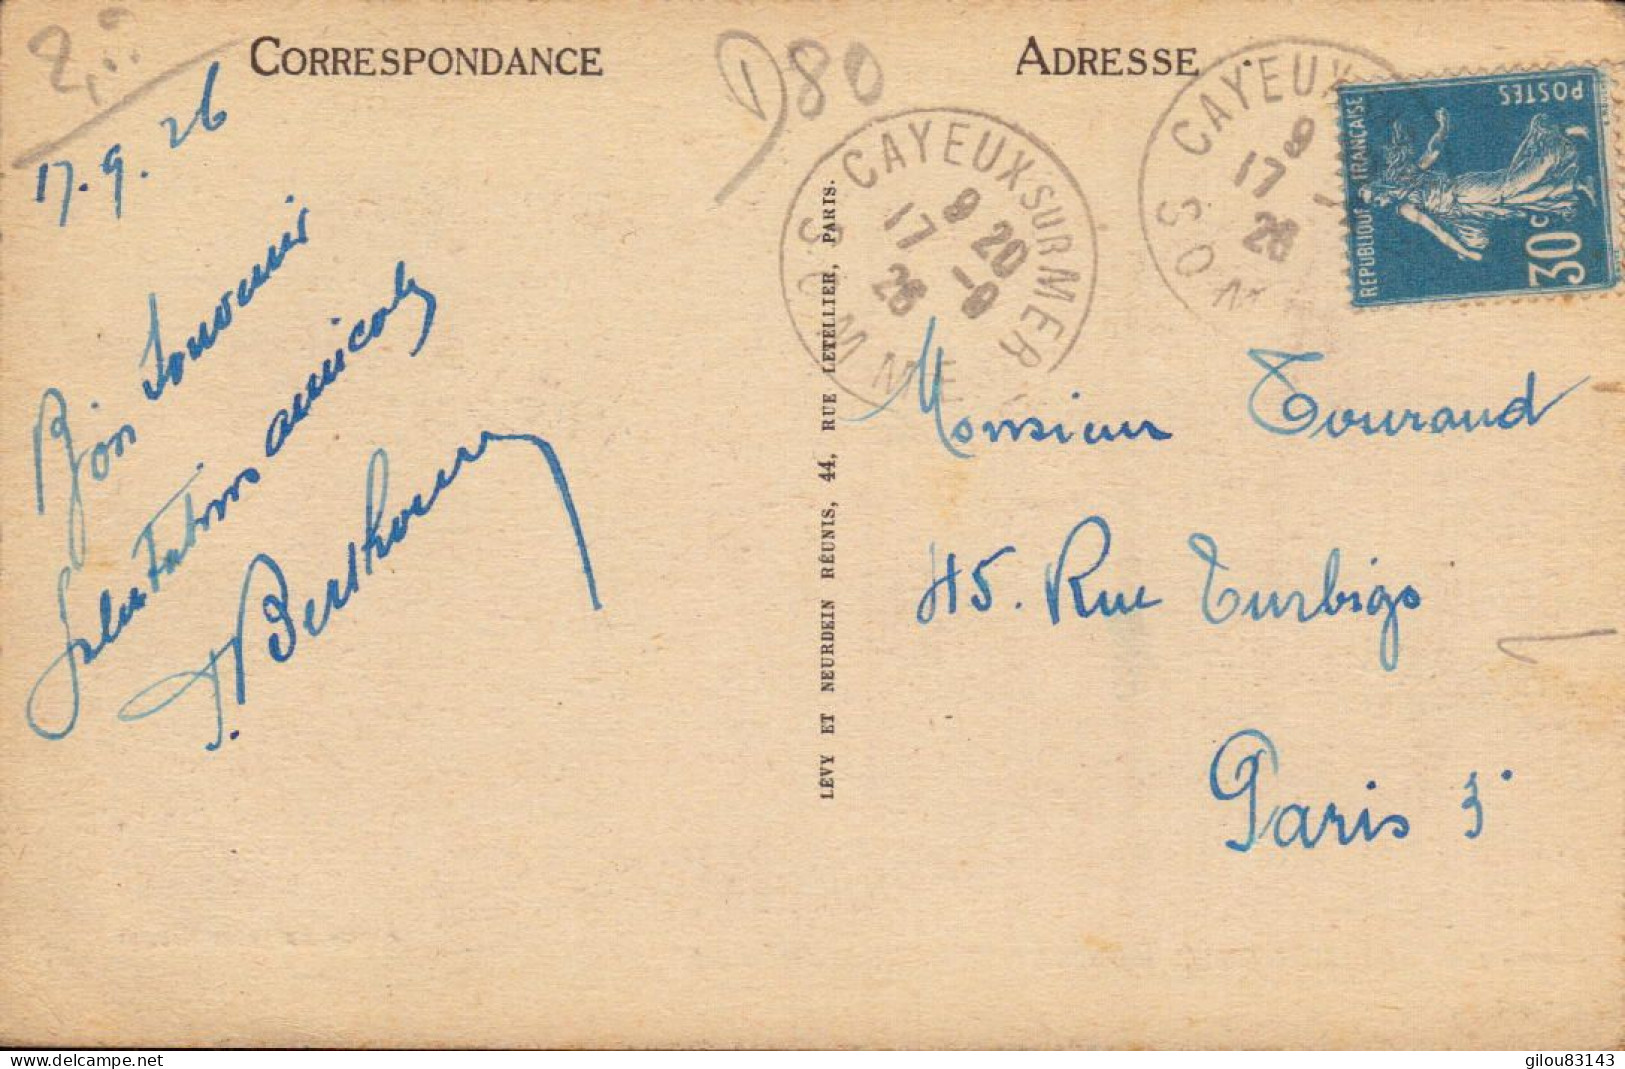 2,00
CORRESPONDANCE
D80
ADRESSE
17.9.26
Bon Souvenir
Salutations amicales
CAYEUX SUR MER
9 20
17 -9
26
SOMME
CAYEUX
9
17
26
SO
REPUBLIQUE FRANÇAISE
POSTES
30c
LÉVY ET NEURDEIN RÉUNIS, 44, RUE LETELLIER, PARIS.
Monsieur Touraud
45. Rue Turbigo
Paris 3e
Delcampe.net
gilou83143